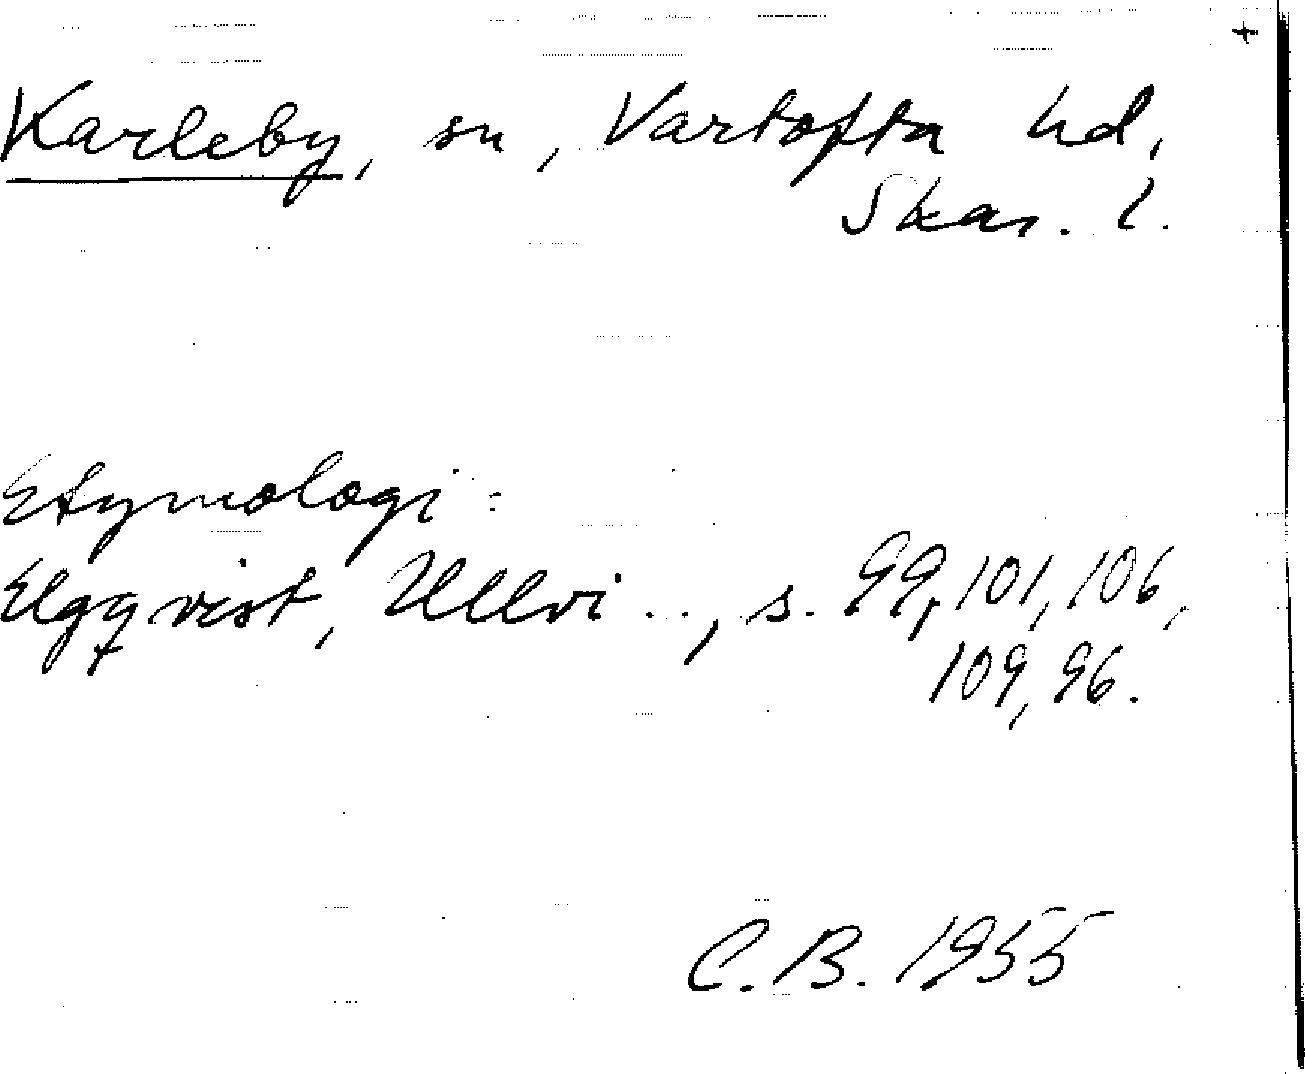 Karleby, sn, Vartofta hd,
Skar. l.
Etymologi:
Elgqvist, Ullvi .., s. 99, 101, 106,
109, 96.
C.B. 1955